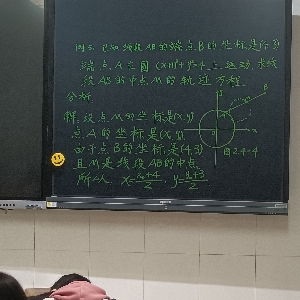 例5 已知线段AB的端点B的坐标是(4,3)
端点A在圆(x+1)²+y²=4上运动,求线
段AB的中点M的轨迹方程.
分析
解:设点M的坐标是(x,y)
点A的坐标是(x₀,y₀)
由于点B的坐标是(4,3)
且M是线段AB的中点
所以 x=x₀+4/2, y=y₀+3/2
B
图2.4-4